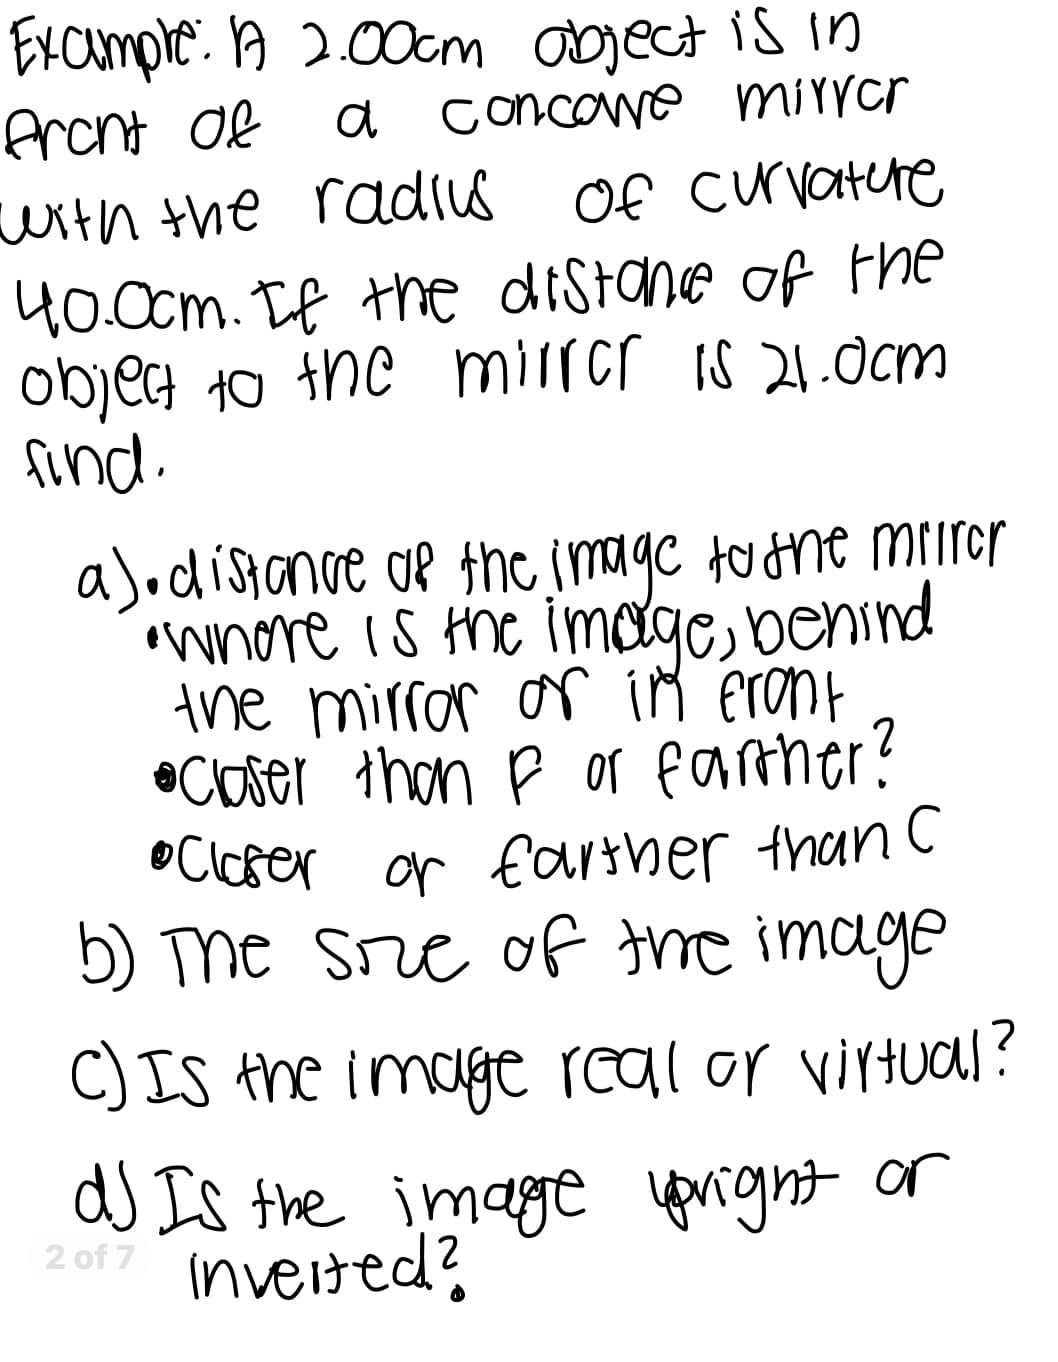 Example: A 2.00cm object is in
front of a concave mirror
with the radius of curvature
40.0cm. If the distance of the
object to the mirror is 21.0cm
find.
a) • distance of the image to the mirror
• Where is the image, behind
the mirror or in front
• Closer than F or farther?
• Closer or farther than C
b) The size of the image
c) Is the image real or virtual?
d) Is the image upright or
2 of 7
inverted?